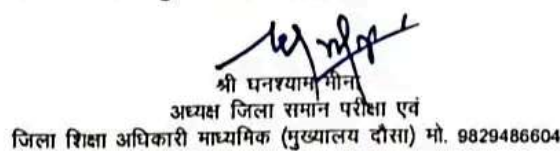 श्री घनश्याम मीना
अध्यक्ष जिला समान परीक्षा एवं
जिला शिक्षा अधिकारी माध्यमिक (मुख्यालय दौसा) मो. 9829486604